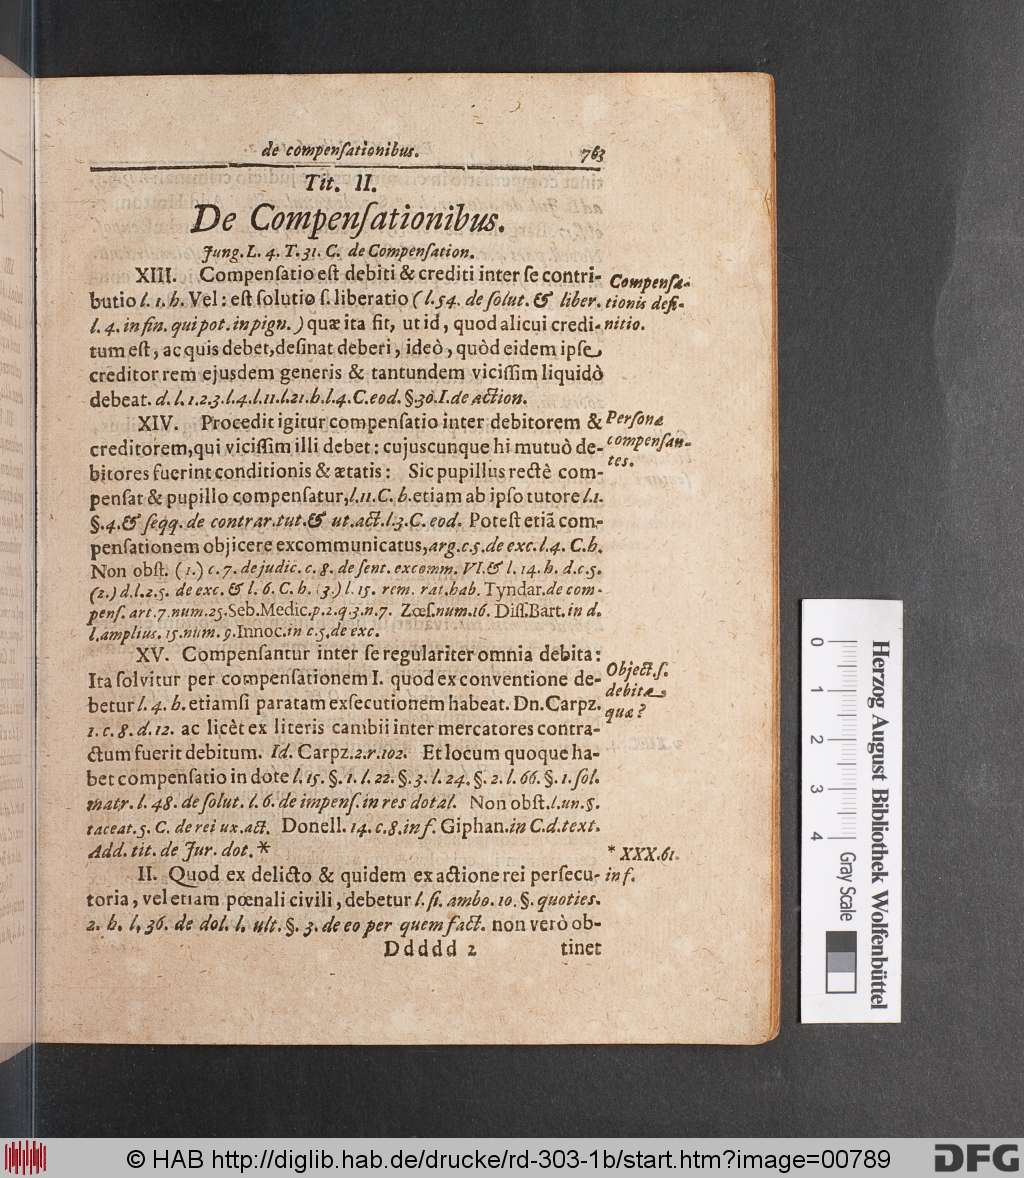 de compenſationibus. 763
Tit. II.
De Compenſationibus.
Jung. L. 4. T. 31. C. de Compenſation.
XIII. Compenſatio eſt debiti & crediti inter ſe contri-
butio l. 1. h. Vel: eſt ſolutio ſ. liberatio (l. 54. de ſolut. & liber.
l. 4. in fin. qui pot. in pign.) quæ ita fit, ut id, quod alicui credi-
tum eſt, ac quis debet, deſinat deberi, ideò, quòd eidem ipſe
creditor rem ejusdem generis & tantundem viciſſim liquidò
debeat. d. l. 1. 2. 3. l. 4. l. 11. l. 21. h. l. 4. C. eod. §. 30. I. de action.
Compenſa-
tionis defi-
nitio.
XIV. Procedit igitur compenſatio inter debitorem &
creditorem, qui viciſſim illi debet: cujuscunque hi mutuò de-
bitores fuerint conditionis & ætatis: Sic pupillus rectè com-
penſat & pupillo compenſatur, l. 11. C. h. etiam ab ipſo tutore l. 1.
§. 4. & ſeqq. de contrar. tut. & ut. act. l. 3. C. eod. Poteſt etiã com-
penſationem objicere excommunicatus, arg. c. 5. de exc. l. 4. C. h.
Non obſt. (1.) c. 7. de judic. c. 8. de ſent. excomm. VI. & l. 14. h. d. c. 5.
(2.) d. l. 2. 5. de exc. & l. 6. C. h. (3.) l. 15. rem. rat. hab. Tyndar. de com-
penſ. art. 7. num. 25. Seb. Medic. p. 2. q. 3. n. 7. Zœſ. num. 16. Diſſ. Bart. in d.
l. amplius. 15. num. 9. Innoc. in c. 5. de exc.
Perſonæ
compenſan-
tes.
XV. Compenſantur inter ſe regulariter omnia debita:
Ita ſolvitur per compenſationem I. quod ex conventione de-
betur l. 4. h. etiamſi paratam exſecutionem habeat. Dn. Carpz.
1. c. 8. d. 12. ac licèt ex literis cambii inter mercatores contra-
ctum fuerit debitum. Id. Carpz. 2. r. 102. Et locum quoque ha-
bet compenſatio in dote l. 15. §. 1. l. 22. §. 3. l. 24. §. 2. l. 66. §. 1. ſol.
matr. l. 48. de ſolut. l. 6. de impenſ. in res dotal. Non obſt. l. un. §.
taceat. 5. C. de rei ux. act. Donell. 14. c. 8. in f. Giphan. in C. d. text.
Add. tit. de Jur. dot. *
Object. ſ.
debitæ
quæ?
* XXX. 61.
in f.
II. Quod ex delicto & quidem ex actione rei perſecu-
toria, vel etiam pœnali civili, debetur l. ſi. ambo. 10. §. quoties.
2. h. l. 36. de dol. l. ult. §. 3. de eo per quem fact. non verò ob-
Ddddd 2 tinet
Herzog August Bibliothek Wolfenbüttel
0 1 2 3 4 Gray Scale
© HAB http://diglib.hab.de/drucke/rd-303-1b/start.htm?image=00789
DFG